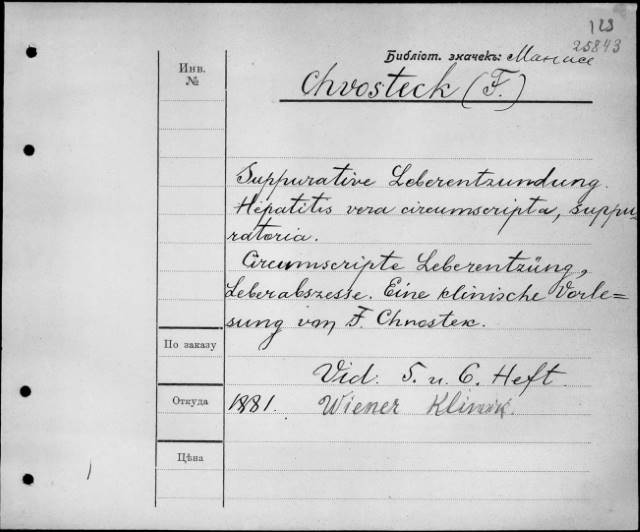 123
25843
Библіот. значекъ:
Инв.
№
Chvosteck (F.)
Suppurative Leberentzundung.
Hepatitis vera circumscripta, suppu-
ratoria.
Circumscripte Leberentzüng,
Leberabszesse. Eine klinische Vorle=
sung von F. Chnostek.
По заказу
Vid. 5. u. 6. Heft.
Откуда
1881. Wiener Klinik.
Цѣна